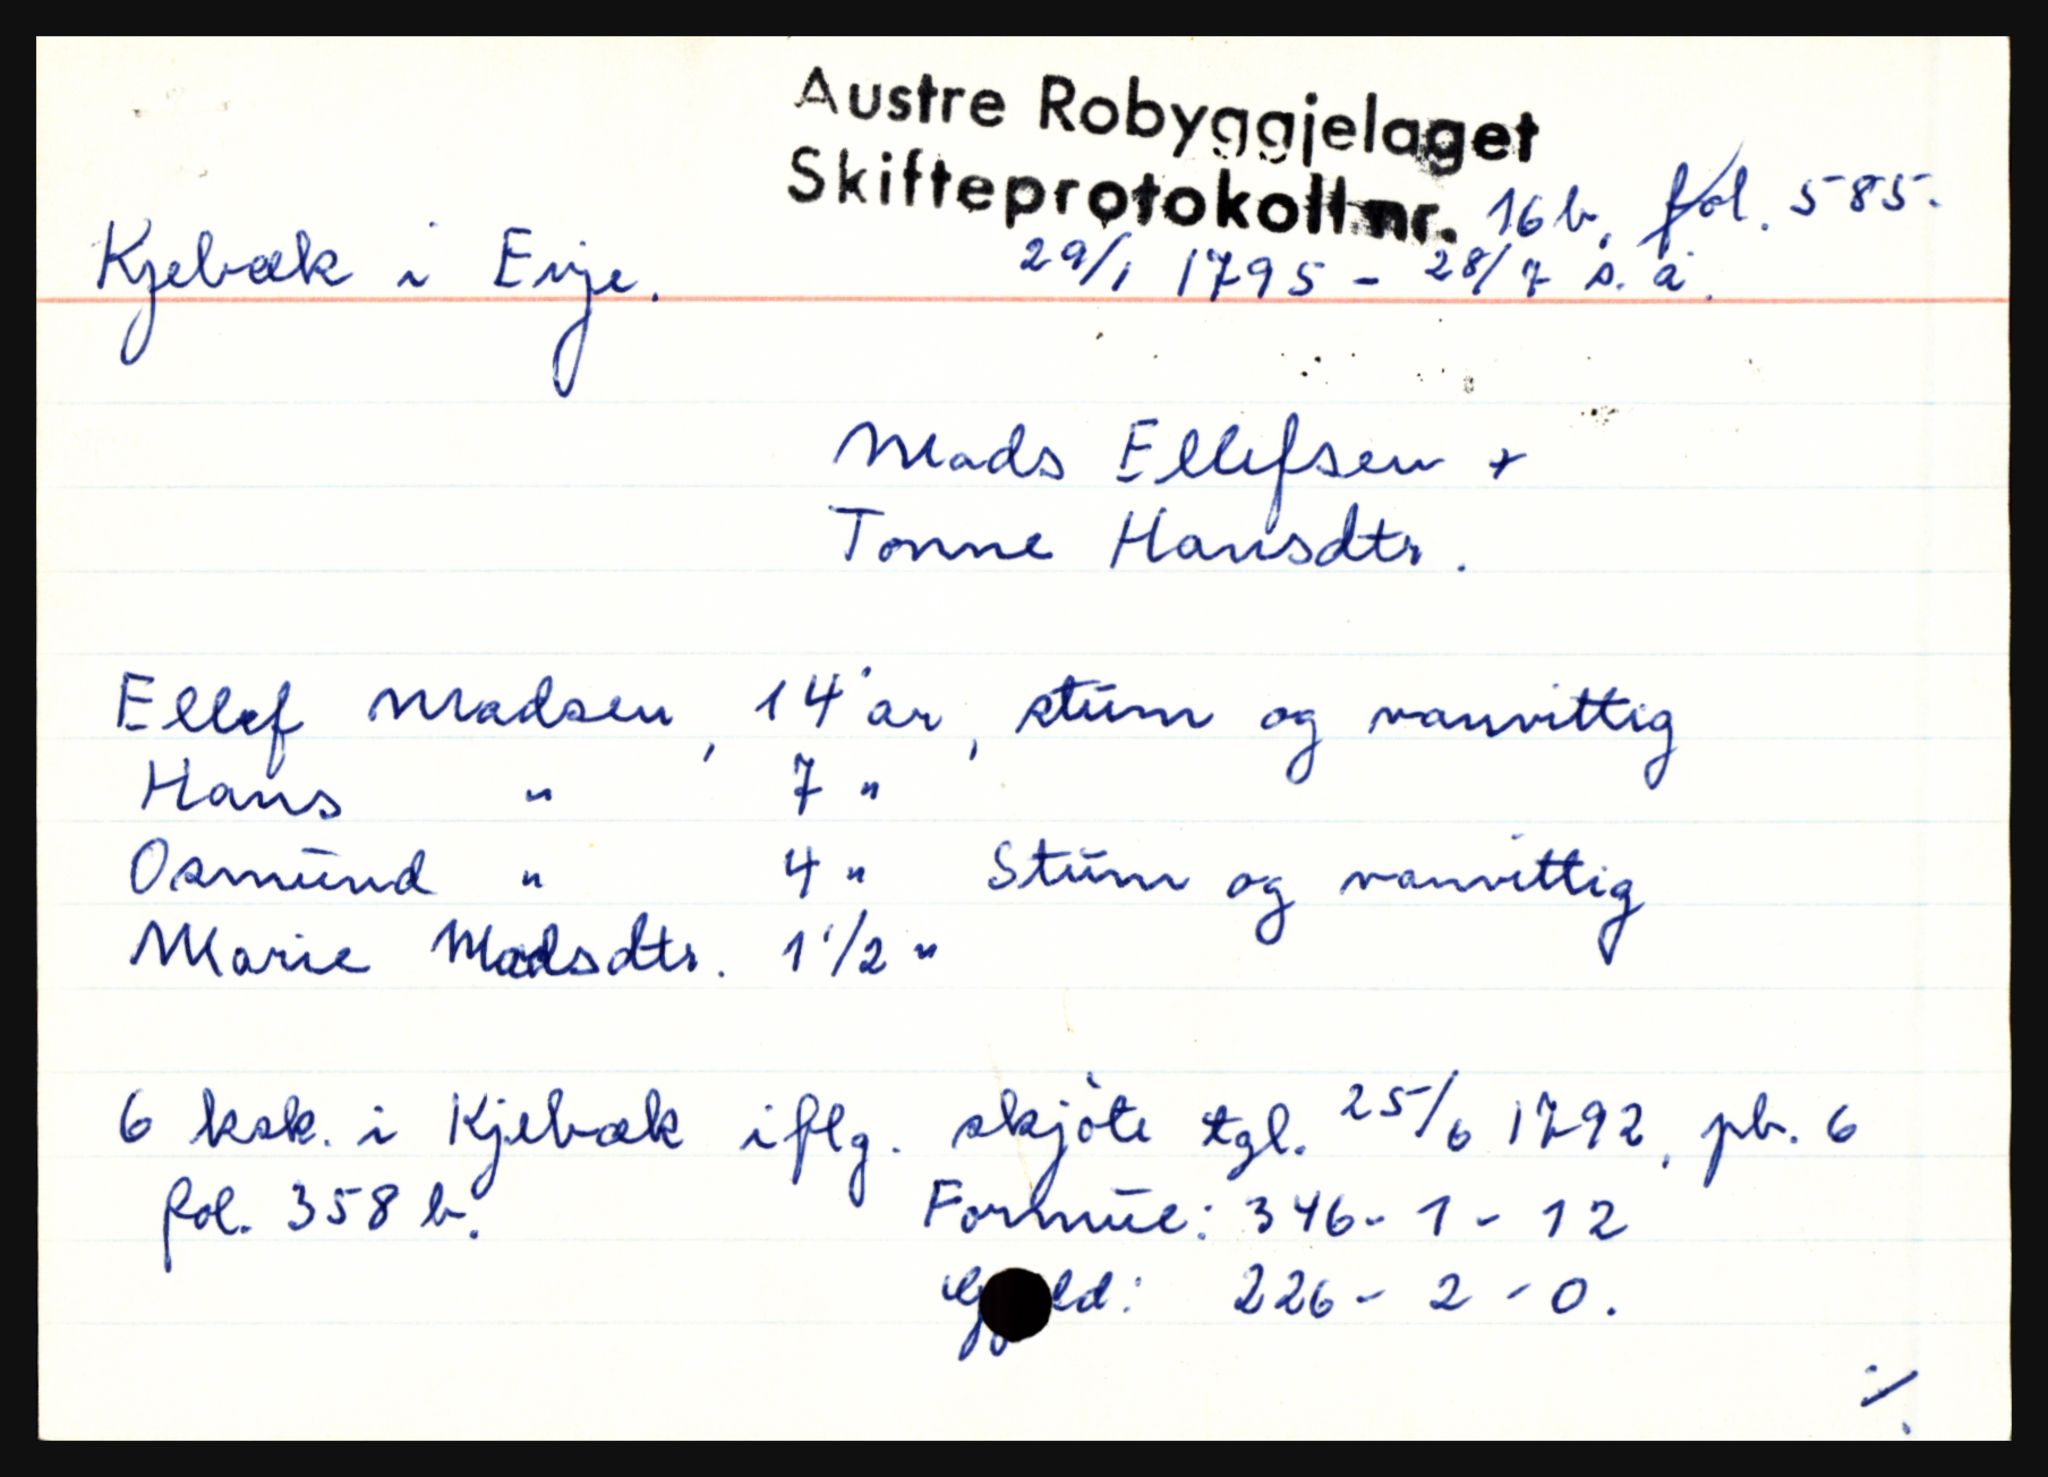 Austre Robyggjelaget
Skifteprotokoll nr. 16 b, fol. 585.
Kjebæk i Evje. 29/1 1795 - 28/7 s. å.
Mads Ellefsen +
Tonne Hansdtr.
Ellef Madsen, 14 år, stum og vanvittig
Hans " 7 "
Osmund " 4 " Stum og vanvittig
Marie Madsdtr. 1 1/2 "
6 ksk. i Kjebæk iflg. skjöte tgl. 25/6 1792, pb. 6
fol. 358 b. Formue: 346 - 1 - 12
Gjeld: 226 - 2 - 0.
./.